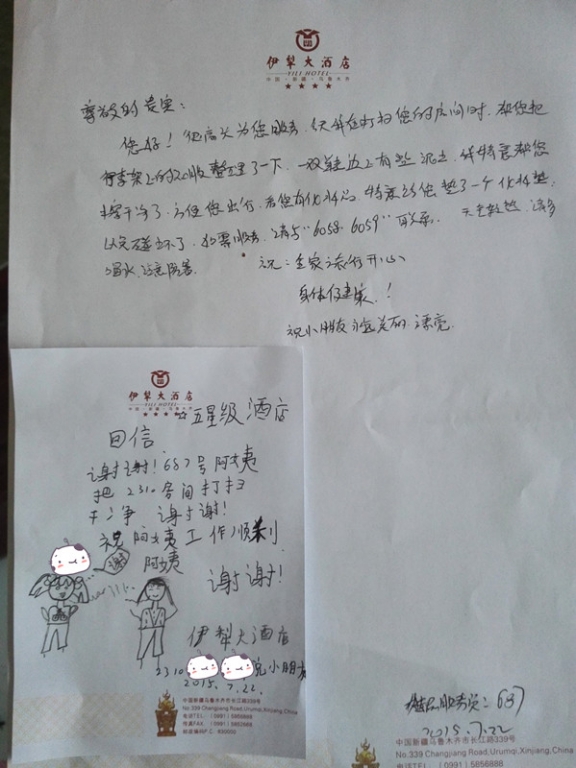 伊犁大酒店
YILI HOTEL
中国·新疆·乌鲁木齐
尊敬的贵宾:
您好!很高兴为您服务,今天我在打扫您的房间时,帮您把
行李架上的衣服整理了一下,一双鞋边上有些泥土,我特意帮您
擦干净了,方便您出行,看您有化妆品,特意给您垫了一个化妆垫,
以免碰坏了,如需服务,请与“6058、6059”联系。天气干热,请多
喝水,注意防暑。
祝:全家旅行开心
身体健康!
祝小朋友永远美丽、漂亮
伊犁大酒店
YILI HOTEL
五星级酒店
回信
谢谢!687号阿姨
把2310房间打扫
干净 谢谢!
祝阿姨工作顺利
谢
阿姨
谢谢!
伊犁大酒店
2310 小朋友
2015.7.22
中国新疆乌鲁木齐市长江路339号
No.339 Changjiang Road,Urumqi,Xinjiang,China
电话TEL:(0991)5856888
传真FAX:(0991)5858888
服务员:687
2015.7.22
中国新疆乌鲁木齐市长江路339号
No.339 Changjiang Road,Urumqi,Xinjiang,China
电话TEL:(0991)5856888